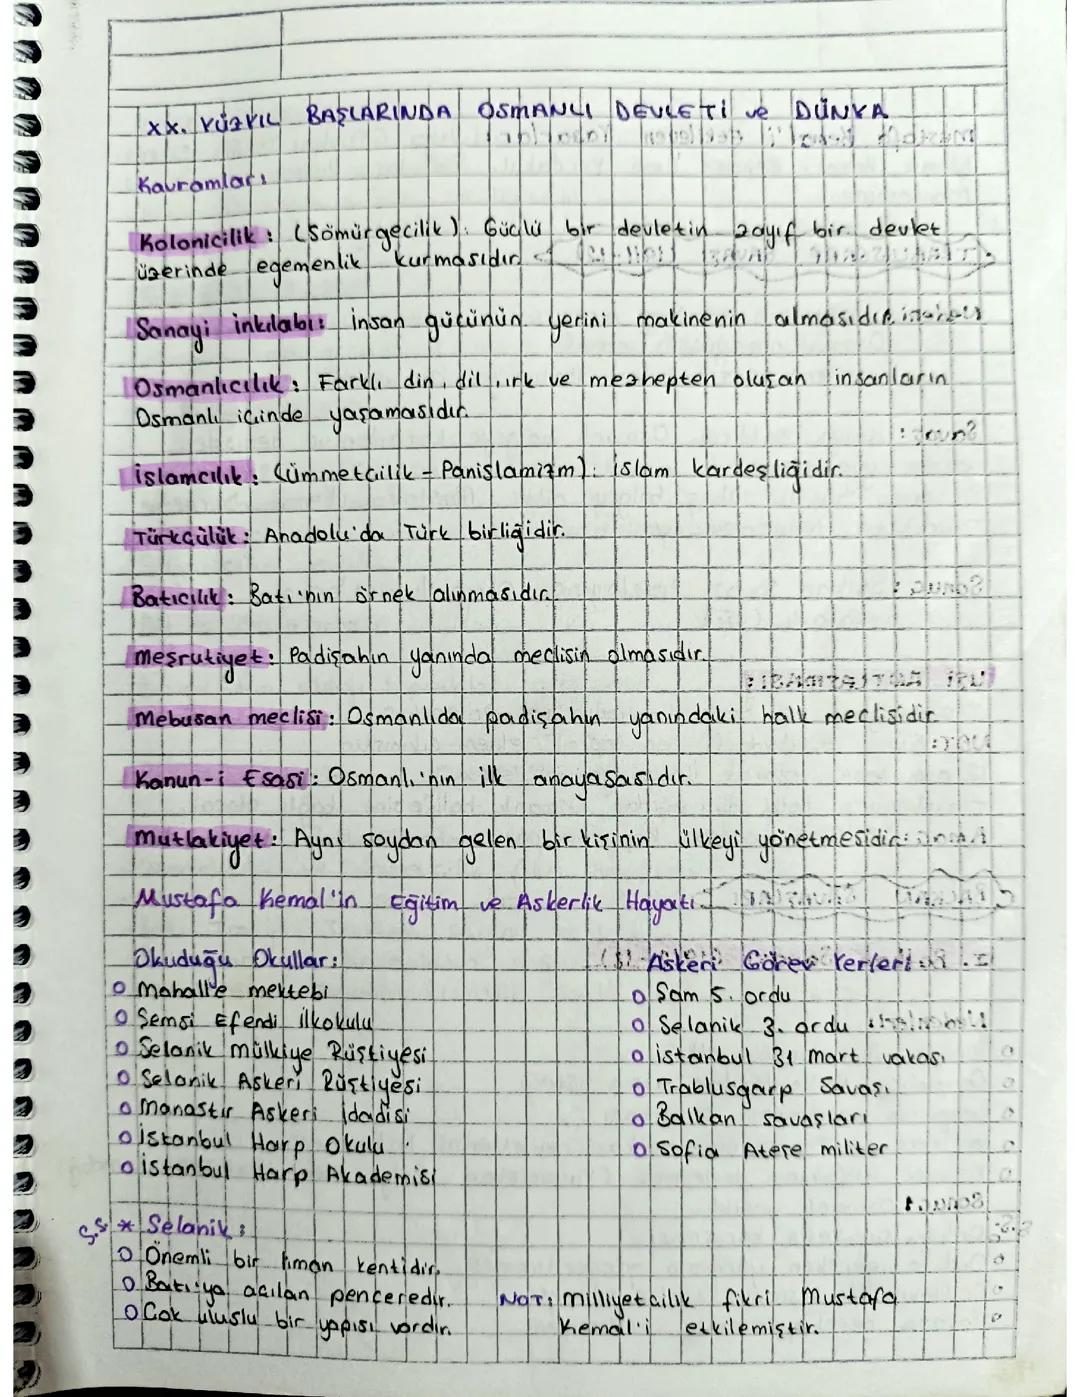 XX. YÜZYIL BAŞLARINDA OSMANLI DEVLETİ ve DÜNYA
Kavramları
Kolonicilik: (Sömürgecilik): Güçlü bir devletin zayıf bir devlet
üzerinde egemenlik kurmasıdır.
Sanayi inkılabı: İnsan gücünün yerini makinenin almasıdır.
Osmanlıcılık: Farklı din, dil, ırk ve mezhepten oluşan insanların
Osmanlı içinde yaşamasıdır.
İslamcılık: (Ümmetçilik = Panislamizm): islam kardeşliğidir.
Türkçülük: Anadolu'da Türk birliğidir.
Batıcılık: Batı'nın örnek alınmasıdır.
Meşrutiyet: Padişahın yanında meclisin olmasıdır.
Mebusan meclisi: Osmanlıda padişahın yanındaki halk meclisidir.
Kanun-i Esasi: Osmanlı'nın ilk anayasasıdır.
Mutlakiyet: Aynı soydan gelen bir kişinin ülkeyi yönetmesidir.
Mustafa Kemal'in Eğitim ve Askerlik Hayatı
Okuduğu Okullar:
o Mahalle mektebi
o Şemsi Efendi ilkokulu
o Selanik mülkiye Rüştiyesi
o Selanik Askeri Rüştiyesi
o Manastır Askeri İdadisi
o İstanbul Harp Okulu
o İstanbul Harp Akademisi
Askeri Görev Yerleri:
o Şam 5. ordu
o Selanik 3. ordu
o İstanbul 31 Mart vakası
o Trablusgarp Savaşı
o Balkan savaşları
o Sofia Ateşe militer
S.S * Selanik:
o Önemli bir liman kentidir.
o Batı'ya açılan penceredir.
o Çok uluslu bir yapısı vardır.
NOT: Milliyetçilik fikri Mustafa
Kemal'i etkilemiştir.